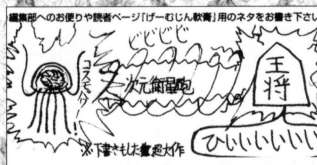 編集部へのお便りや読者ページ「げーむじん軟膏」用のネタをお書き下さい
ビビビビビ
コスモッ!
次元衛星砲
王将
ひいいいいいい
※下書きもした超大作